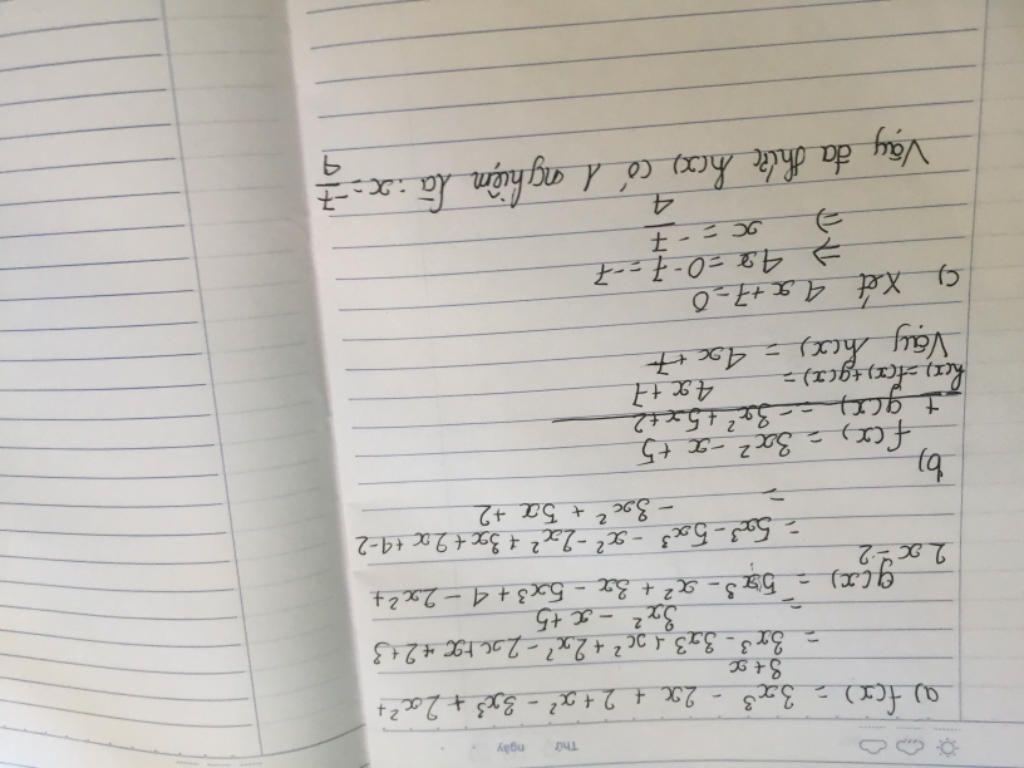 Thứ ngày
a) f(x) = 3x³ - 2x + 2 + x² - 3x³ + 2x² +
3 + x
= 3x³ - 3x³ + x² + 2x² - 2x + x + 2 + 3
= 3x² - x + 5
g(x) = 5x³ - x² + 3x - 5x³ + 4 - 2x² +
2x - 2
= 5x³ - 5x³ - x² - 2x² + 3x + 2x + 4 - 2
= - 3x² + 5x + 2
b)
f(x) = 3x² - x + 5
+ g(x) = - 3x² + 5x + 2
h(x) = f(x) + g(x) = 4x + 7
Vậy h(x) = 4x + 7
c) Xét 4x + 7 = 0
⇒ 4x = 0 - 7 = -7
⇒ x = -7/4
Vậy đa thức h(x) có 1 nghiệm là : x = -7/4